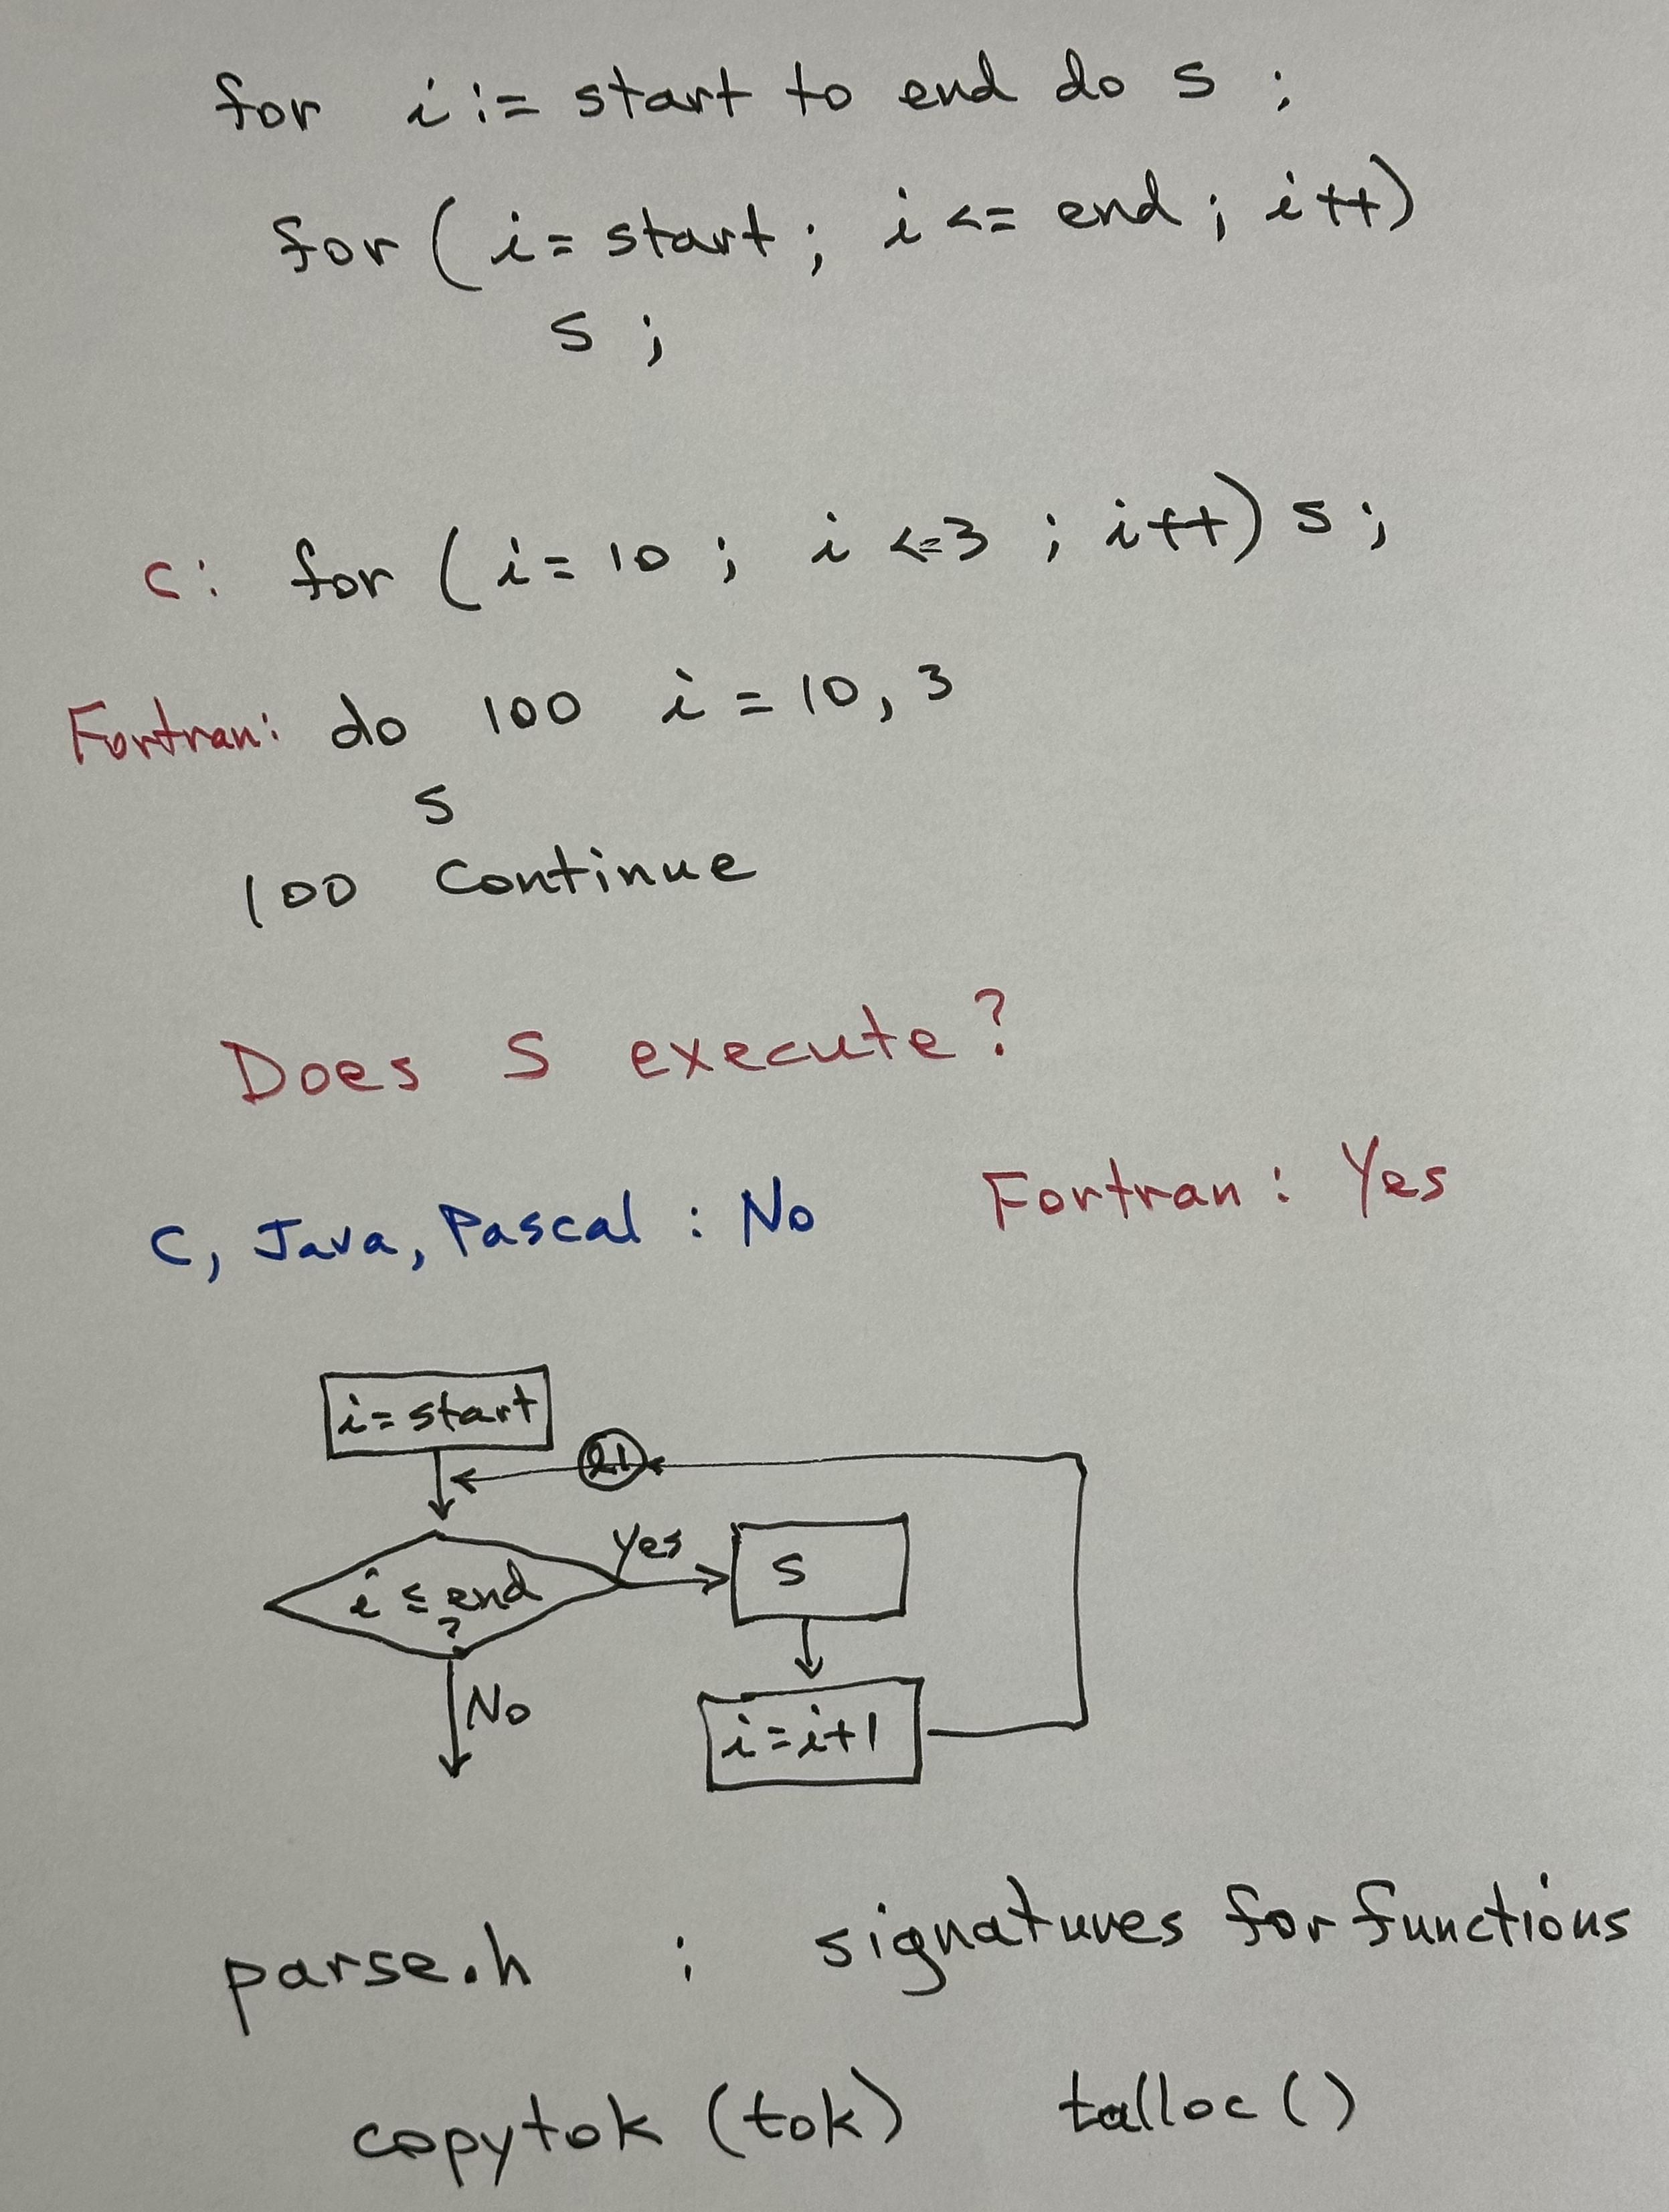 for i := start to end do s ;
for ( i = start ; i <= end ; i++)
s ;
c: for ( i = 10 ; i <=3 ; i++) s ;
Fortran: do 100 i = 10, 3
s
100 Continue
Does S execute?
C, Java, Pascal : No Fortran : Yes
i = start
i ≤ end
?
Yes
s
No
i = i+1
parse.h : signatures for functions
copytok (tok) talloc ( )